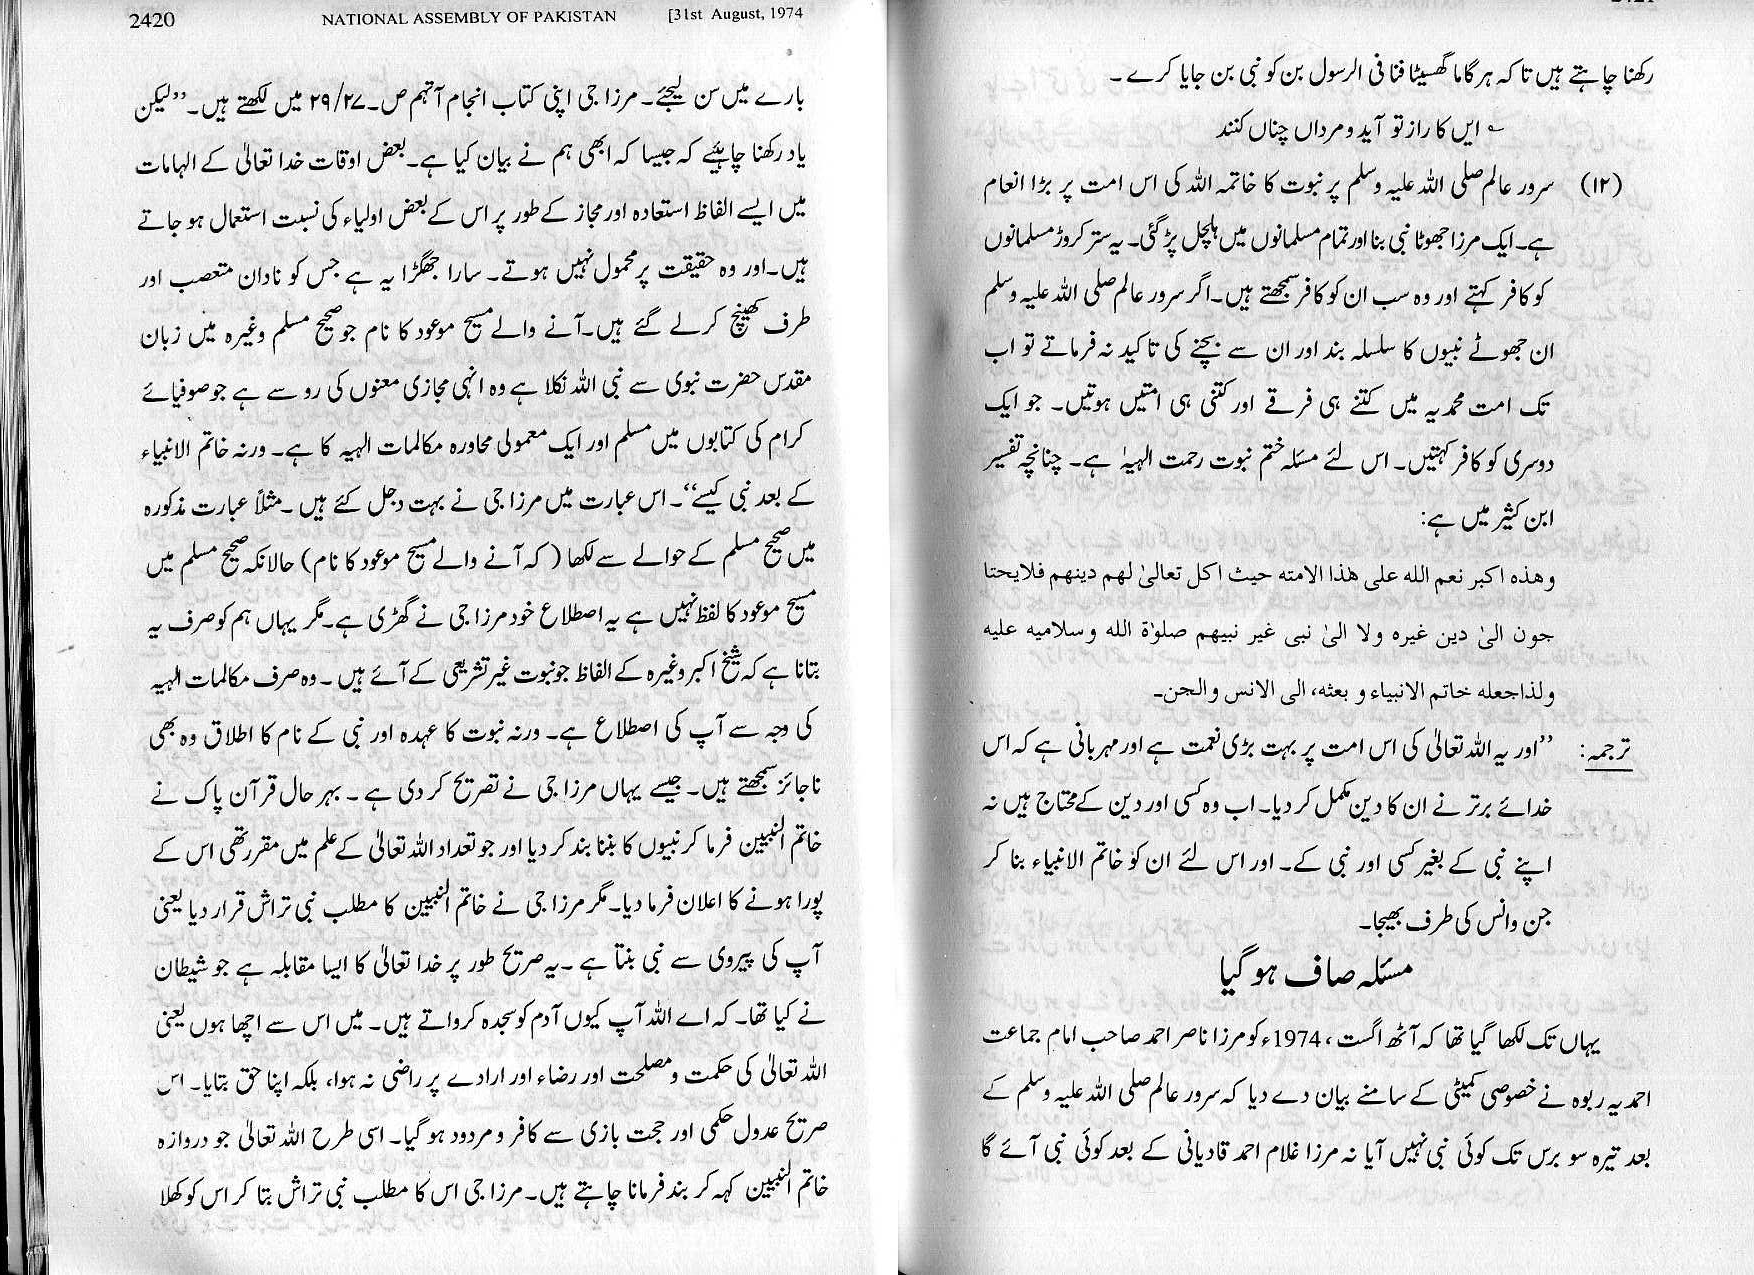 2420 NATIONAL ASSEMBLY OF PAKISTAN [31st August, 1974
بارے میں سن لیجئے۔ مرزا جی اپنی کتاب انجام آتھم ص۔۲۹/۲۷ میں لکھتے ہیں۔ ’’لیکن
یاد رکھنا چاہئیے کہ جیسا کہ ابھی ہم نے بیان کیا ہے۔ بعض اوقات خدا تعالیٰ کے الہامات
میں ایسے الفاظ استعادہ اور مجاز کے طور پر اس کے بعض اولیاء کی نسبت استعمال ہو جاتے
ہیں۔ اور وہ حقیقت پر محمول نہیں ہوتے۔ سارا جھگڑا یہ ہے جس کو نادان متعصب اور
طرف کھینچ کر لے گئے ہیں۔ آنے والے مسیح موعود کا نام جو صحیح مسلم وغیرہ میں زبان
مقدس حضرت نبوی سے نبی اللہ نکلا ہے وہ انہی مجازی معنوں کی رو سے ہے جو صوفیائے
کرام کی کتابوں میں مسلم اور ایک معمولی محاورہ مکالمات الہیہ کا ہے۔ ورنہ خاتم الانبیاء
کے بعد نبی کیسے‘‘۔ اس عبارت میں مرزا جی نے بہت دجل کئے ہیں۔ مثلاً عبارت مذکورہ
میں صحیح مسلم کے حوالے سے لکھا (کہ آنے والے مسیح موعود کا نام) حالانکہ صحیح مسلم میں
مسیح موعود کا لفظ نہیں ہے یہ اصطلاع خود مرزا جی نے گھڑی ہے۔ مگر یہاں ہم کو صرف یہ
بتانا ہے کہ شیخ اکبر وغیرہ کے الفاظ جو نبوت غیر تشریعی کے آئے ہیں۔ وہ صرف مکالمات الہیہ
کی وجہ سے آپ کی اصطلاع ہے۔ ورنہ نبوت کا عہدہ اور نبی کے نام کا اطلاق وہ بھی
ناجائز سمجھتے ہیں۔ جیسے یہاں مرزا جی نے تصریح کر دی ہے۔ بہر حال قرآن پاک نے
خاتم النبیین فرما کر نبیوں کا بننا بند کر دیا اور جو تعداد اللہ تعالیٰ کے علم میں مقرر تھی اس کے
پورا ہونے کا اعلان فرما دیا۔ مگر مرزا جی نے خاتم النبیین کا مطلب نبی تراش قرار دیا یعنی
آپ کی پیروی سے نبی بنتا ہے۔ یہ صریح طور پر خدا تعالیٰ کا ایسا مقابلہ ہے جو شیطان
نے کیا تھا۔ کہ اے اللہ آپ کیوں آدم کو سجدہ کرواتے ہیں۔ میں اس سے اچھا ہوں یعنی
اللہ تعالیٰ کی حکمت و مصلحت اور رضاء اور ارادے پر راضی نہ ہوا، بلکہ اپنا حق بتایا۔ اس
صریح عدول حکمی اور حجت بازی سے کافر و مردود ہو گیا۔ اسی طرح اللہ تعالیٰ جو دروازہ
خاتم النبیین کہہ کر بند فرمانا چاہتے ہیں۔ مرزا جی اس کا مطلب نبی تراش بتا کر اس کو کھلا
رکھنا چاہتے ہیں تا کہ ہر گاما گھسیٹا فنا فی الرسول بن کو نبی بن جایا کرے۔
؎ ایں کار از تو آید و مرداں چناں کنند
(۱۲) سرور عالم صلی اللہ علیہ وسلم پر نبوت کا خاتمہ اللہ کی اس امت پر بڑا انعام
ہے۔ ایک مرزا جھوٹا نبی بنا اور تمام مسلمانوں میں ہلچل پڑ گئی۔ یہ ستر کروڑ مسلمانوں
کو کافر کہتے اور وہ سب ان کو کافر سمجھتے ہیں۔ اگر سرور عالم صلی اللہ علیہ وسلم
ان جھوٹے نبیوں کا سلسلہ بند اور ان سے بچنے کی تاکید نہ فرماتے تو اب
تک امت محمدیہ میں کتنے ہی فرقے اور کتنی ہی امتیں ہوتیں۔ جو ایک
دوسری کو کافر کہتیں۔ اس لئے مسئلہ ختم نبوت رحمت الہیہٰ ہے۔ چنانچہ تفسیر
ابن کثیر میں ہے:
وهذه اكبر نعم الله على هذا الامته حيث اكل تعالىٰ لهم دينهم فلايحتا
جون الىٰ دين غيره ولا الىٰ نبى غير نبيهم صلوٰة الله وسلاميه عليه
ولذاجعله خاتم الانبياء و بعثه، الى الانس والجن۔
ترجمہ: ’’اور یہ اللہ تعالیٰ کی اس امت پر بہت بڑی نعمت ہے اور مہربانی ہے کہ اس
خدائے برتر نے ان کا دین مکمل کر دیا۔ اب وہ کسی اور دین کے محتاج ہیں نہ
اپنے نبی کے بغیر کسی اور نبی کے۔ اور اس لئے ان کو خاتم الانبیاء بنا کر
جن وانس کی طرف بھیجا۔
مسئلہ صاف ہو گیا
یہاں تک لکھا گیا تھا کہ آٹھ اگست، 1974ء کو مرزا ناصر احمد صاحب امام جماعت
احمدیہ ربوہ نے خصوصی کمیٹی کے سامنے بیان دے دیا کہ سرور عالم صلی اللہ علیہ وسلم کے
بعد تیرہ سو برس تک کوئی نبی نہیں آیا نہ مرزا غلام احمد قادیانی کے بعد کوئی نبی آئے گا